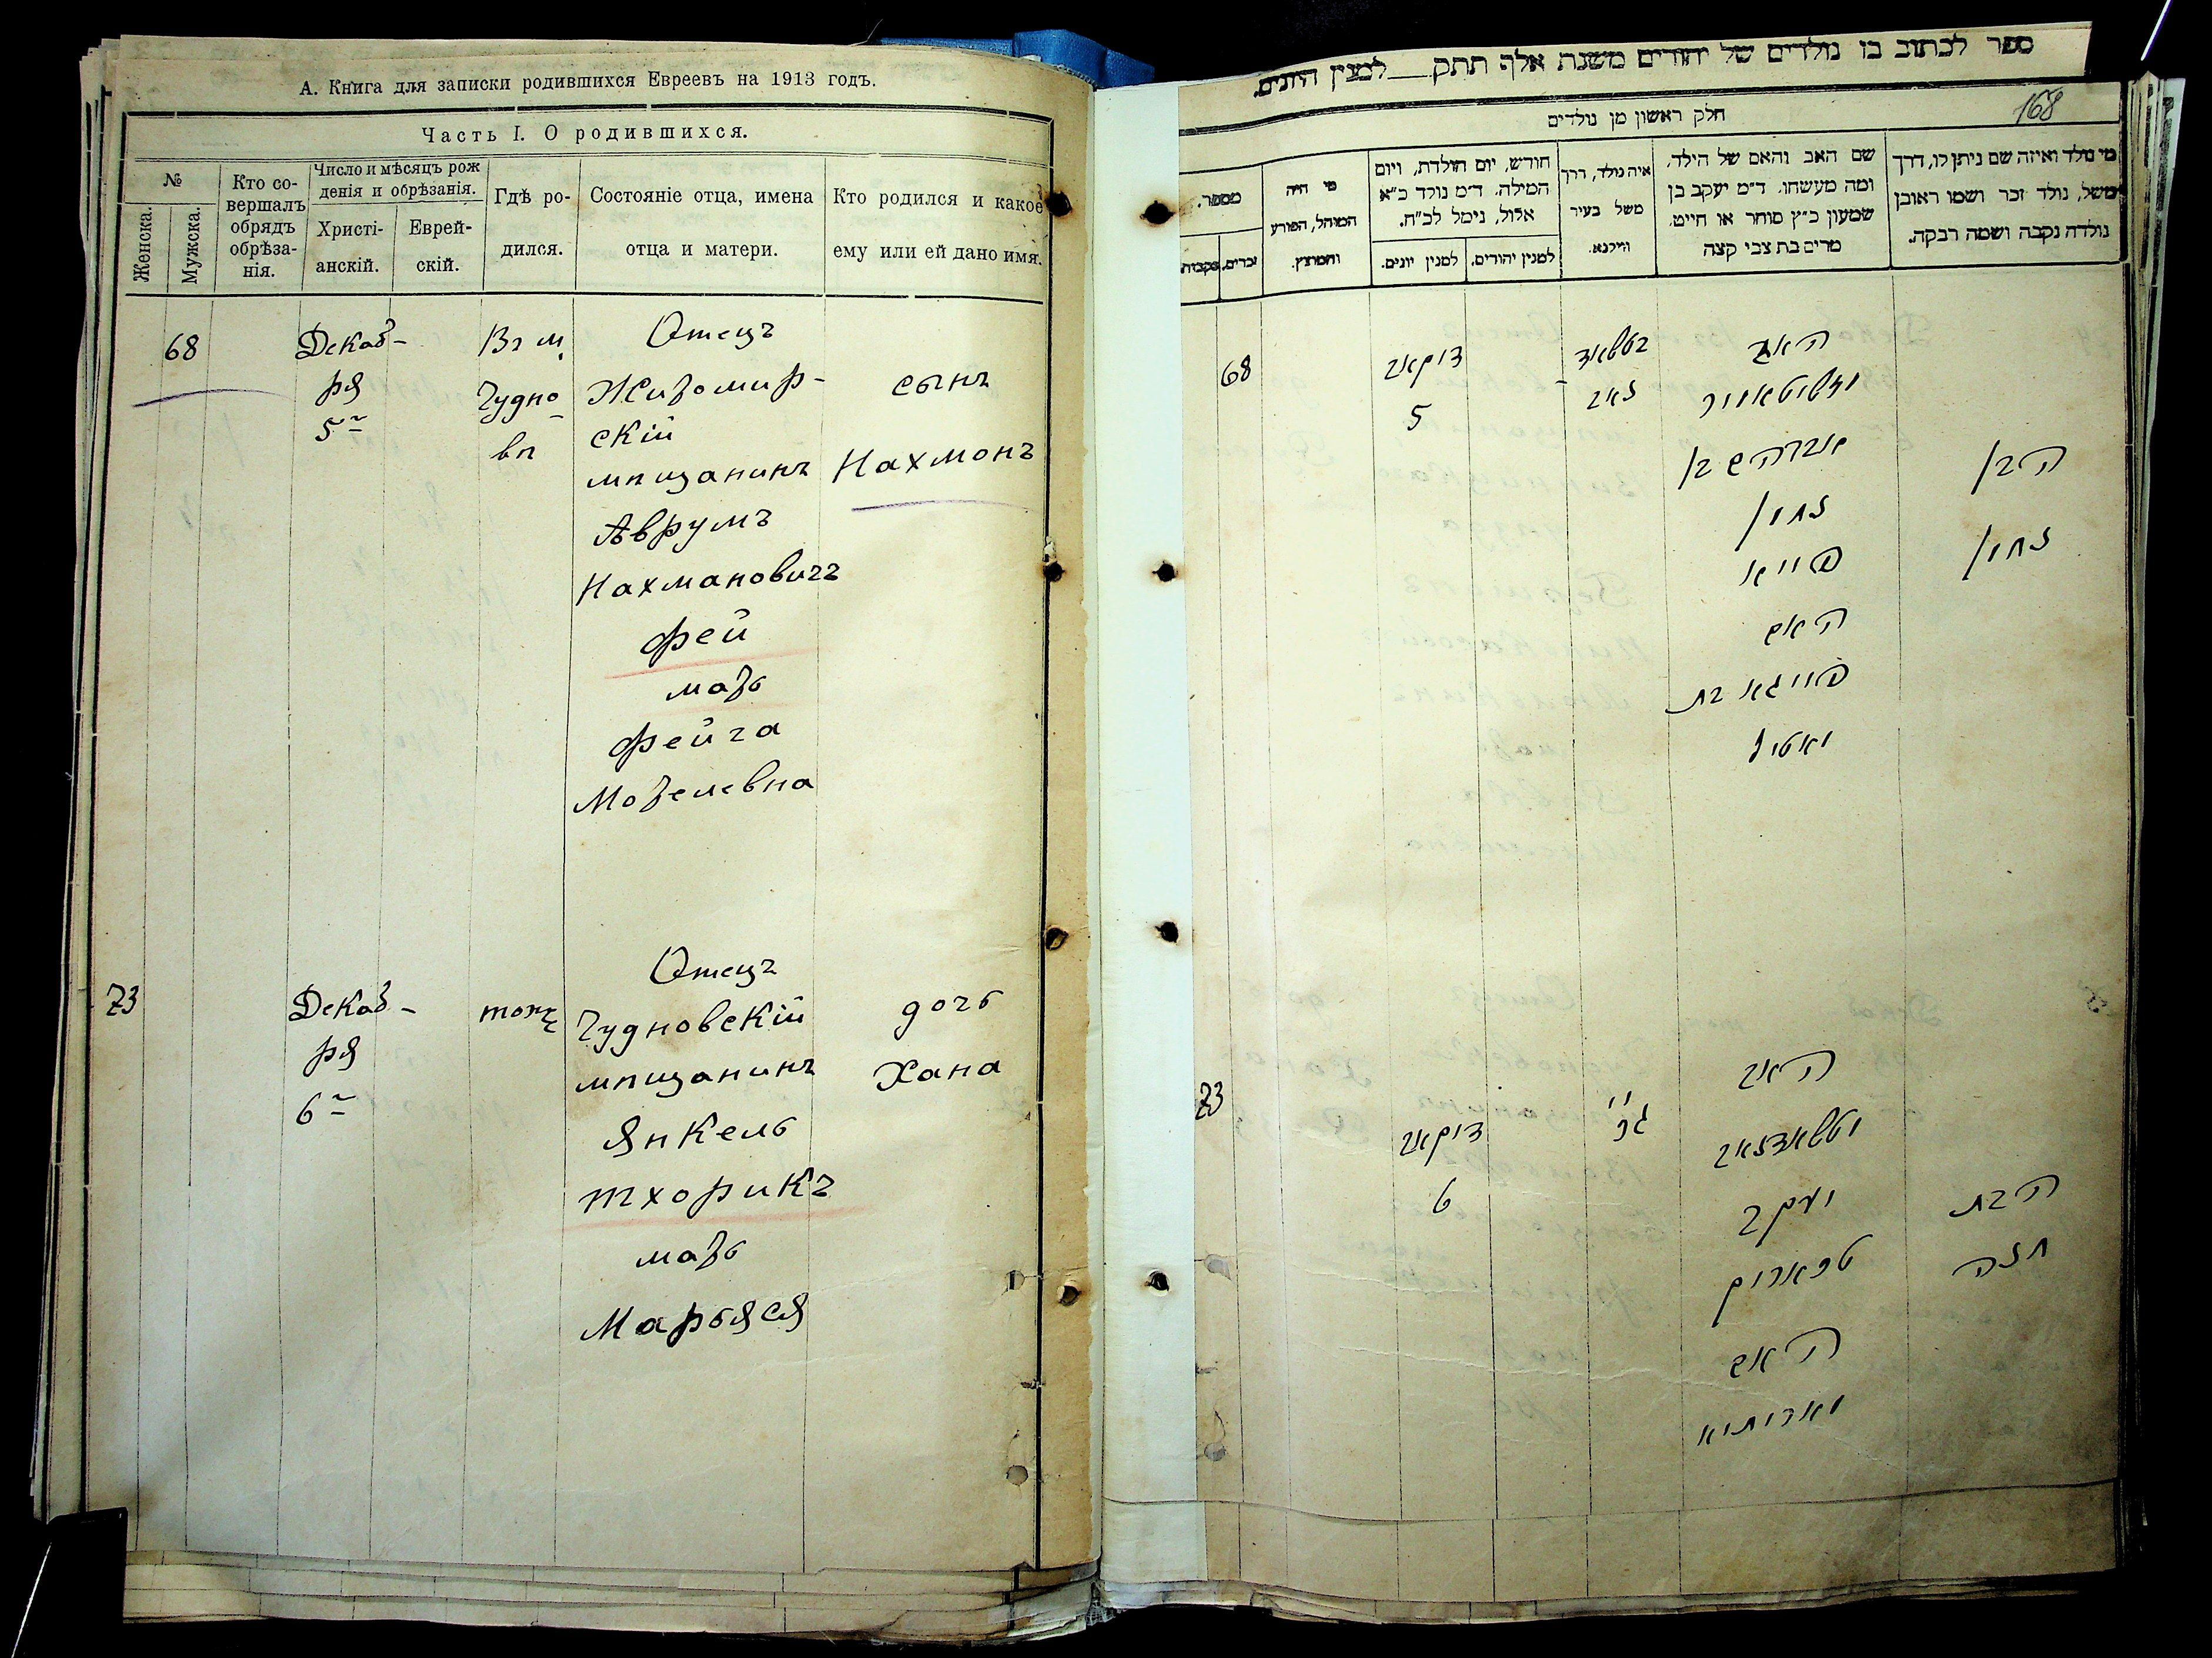 А. Книга для записки родившихся Евреевъ на 1913 годъ.
Часть I. О родившихся.
№
Женска.
Мужска.
Кто со-
вершалъ
обрядъ
обрѣза-
нія.
Число и мѣсяцъ рож
денія и обрѣзанія.
Христі-
анскій.
Еврей-
скій.
Гдѣ ро-
дился.
Состояніе отца, имена
отца и матери.
Кто родился и какое
ему или ей дано имя.
68
Декаб-
ря
5
Въ м.
Чудно
вѣ
Отецъ
Житомир-
скій
мѣщанинъ
Аврумъ
Нахмановичъ
Фей
мать
Фейга
Мотелевна
сынъ
Нахмонъ
73
Декаб-
ря
6
тоже
Отецъ
Чудновскій
мѣщанинъ
Янкель
Тхорикъ
мать
Марьяся
дочь
Хана
ספר לכתוב בו נולדים של יהודים משנת אלף תתק למנין היונים.
168
חלק ראשון מן נולדים
מי נולד ואיזה שם ניתן לו, דרך
משל, נולד זכר ושמו ראובן
נולדה נקבה ושמה רבקה.
שם האב והאם של הילד,
ומה מעשהו. ד״מ יעקב בן
שמעון כ״ץ סוחר או חייט.
מרים בת צבי קצה
איה נולד, דרך
משל בעיר
ווילנא.
חודש, יום הולדת, ויום
המילה. ד״מ נולד כ״א
אלול, נימל לכ״ח.
למנין יהודים.
למנין יונים.
מי היה
המוהל, הפורע
והמוצץ.
מספר.
זכרים.
נקבות
68
דיקאב
5
האב
אברהם בן
נחמן
פייא
האם
פייגא בת
הבן
נחמן
73
דיקאב
6
האב
יעקב
האם
הבת
חנה